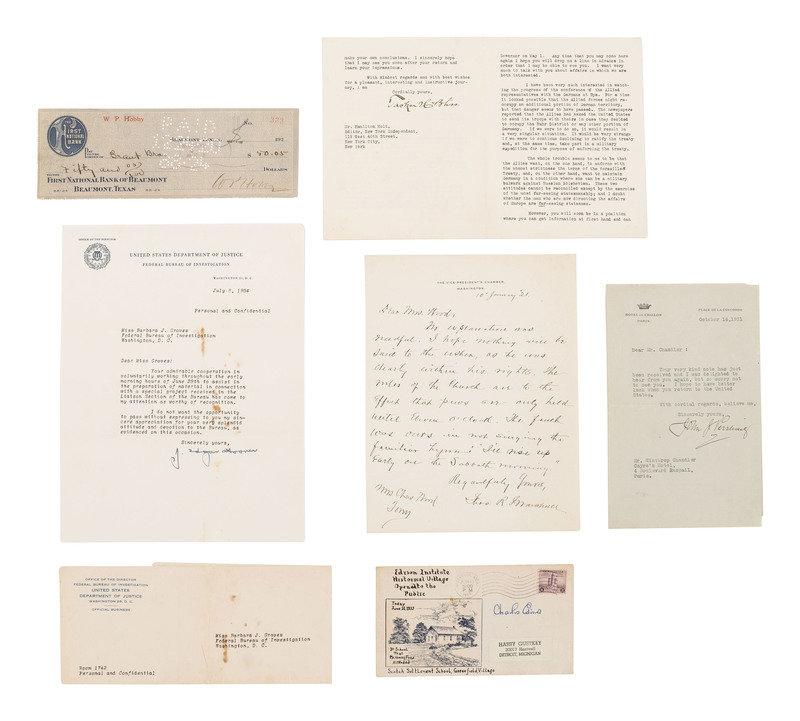 W. P. Hobby
No.
328
THE FIRST NATIONAL BANK
BEAUMONT, TEXAS
192
PAY TO THE ORDER OF
$ 50.05
Fifty and
DOLLARS
FIRST NATIONAL BANK OF BEAUMONT
BEAUMONT, TEXAS
W P Hobby
make your own conclusions. I sincerely hope
that I may see you soon after your return and
learn your impressions.
With kindest regards and with best wishes
for a pleasant, interesting and instructive jour-
ney, I am
Cordially yours,
Tasker H. Bliss.
Mr. Hamilton Holt,
Editor, New York Independent,
119 West 40th Street,
New York City,
New York
Governor on May 1. Any time that you may come here
again I hope you will drop me a line in advance in
order that I may be able to see you. I want very
much to talk with you about affairs in which we are
both interested.
I have been very much interested in watch-
ing the progress of the conference of the Allied
representatives with the Germans at Spa. For a time
it looked possible that the Allied forces might re-
occupy an additional portion of German territory,
but that danger seems to have passed. The newspapers
reported that the Allies had asked the United States
to send its troops with theirs in case they decided
to occupy the Ruhr District or any other portion of
Germany. If we were to do so, it would result in
a very singular situation. It would be very strange
if we were to continue declining to ratify the treaty
and, at the same time, take part in a military
expedition for the purpose of enforcing the treaty.
The whole trouble seems to me to be that
the Allies want, on the one hand, to enforce with
the utmost strictness the terms of the Versailles
Treaty, and, on the other hand, want to maintain
Germany in a condition where she can be a military
bulwark against Russian Bolshevism. These two
attitudes cannot be reconciled except by the exercise
of the most far-seeing statesmanship; and I doubt
whether the men who are now directing the affairs
of Europe are far-seeing statesmen.
However, you will soon be in a position
where you can get information at first hand and can
OFFICE OF THE DIRECTOR
UNITED STATES DEPARTMENT OF JUSTICE
FEDERAL BUREAU OF INVESTIGATION
WASHINGTON 25, D. C.
July 8, 1954
Personal and Confidential
Miss Barbara J. Groves
Federal Bureau of Investigation
Washington, D. C.
Dear Miss Groves:
Your admirable cooperation in
voluntarily working throughout the early
morning hours of June 29th to assist in
the preparation of material in connection
with a special project received in the
Liaison Section of the Bureau has come to
my attention as worthy of recognition.
I do not want the opportunity
to pass without expressing to you my sin-
cere appreciation for your very splendid
attitude and devotion to the Bureau, as
evidenced on this occasion.
Sincerely yours,
J. Edgar Hoover
THE VICE-PRESIDENT'S CHAMBER,
WASHINGTON.
10 January '21.
Dear Mrs. Wood:
My explanation was
needful. I hope nothing will be
said to the usher, as he was
clearly within his rights. The
rules of the Church are to the
effect that pews are only held
until Eleven o'clock. The fault
was ours in not singing the
familiar hymn "I'll rise up
early on the Sabbath morning"
Regardfully Yours,
Thos. R. Marshall
Mrs Chas Wood
HOTEL DE CRILLON
PARIS
PLACE DE LA CONCORDE
October 14, 1931
Dear Mr. Chandler :
Your very kind note has just
been received and I was delighted to
hear from you again, but so sorry not
to see you. I hope to have better
luck when you return to the United
States.
With cordial regards, believe me,
Sincerely yours,
John J Pershing
Mr. Winthrop Chandler
Cayre's Hotel,
4 Boulevard Raspail,
Paris.
OFFICE OF THE DIRECTOR
FEDERAL BUREAU OF INVESTIGATION
UNITED STATES
DEPARTMENT OF JUSTICE
WASHINGTON 25, D. C.
OFFICIAL BUSINESS
Miss Barbara J. Groves
Federal Bureau of Investigation
Washington, D. C.
Room 1742
Personal and Confidential
Edison Institute
Historical Village
Opened to the
Public
Today
June 1933
School
That
Henry Ford
Attended
Scotch Settlement School, Greenfield Village
HARRY GUSTKEY
DETROIT, MICHIGAN